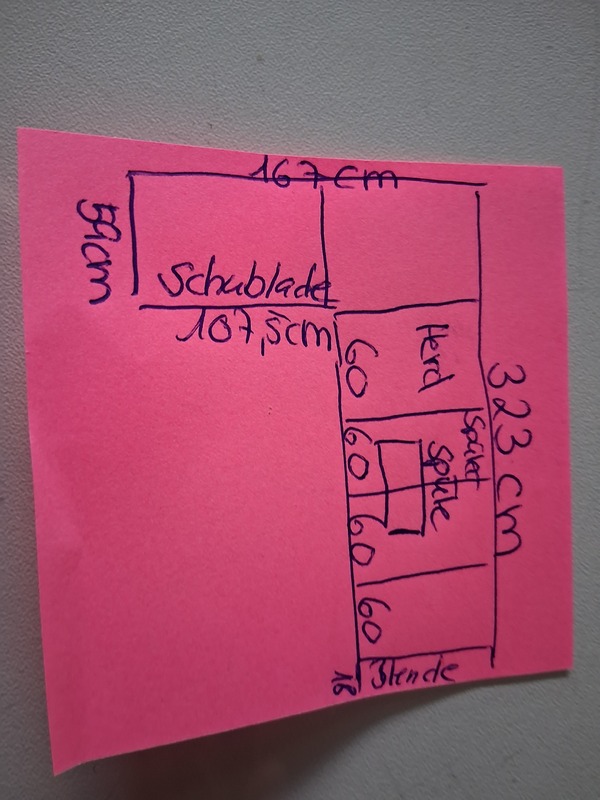 167 cm
59cm
Schublade
107,5cm
Herd
60
323 cm
Spület
Spüle
60
60
60
Blende
18